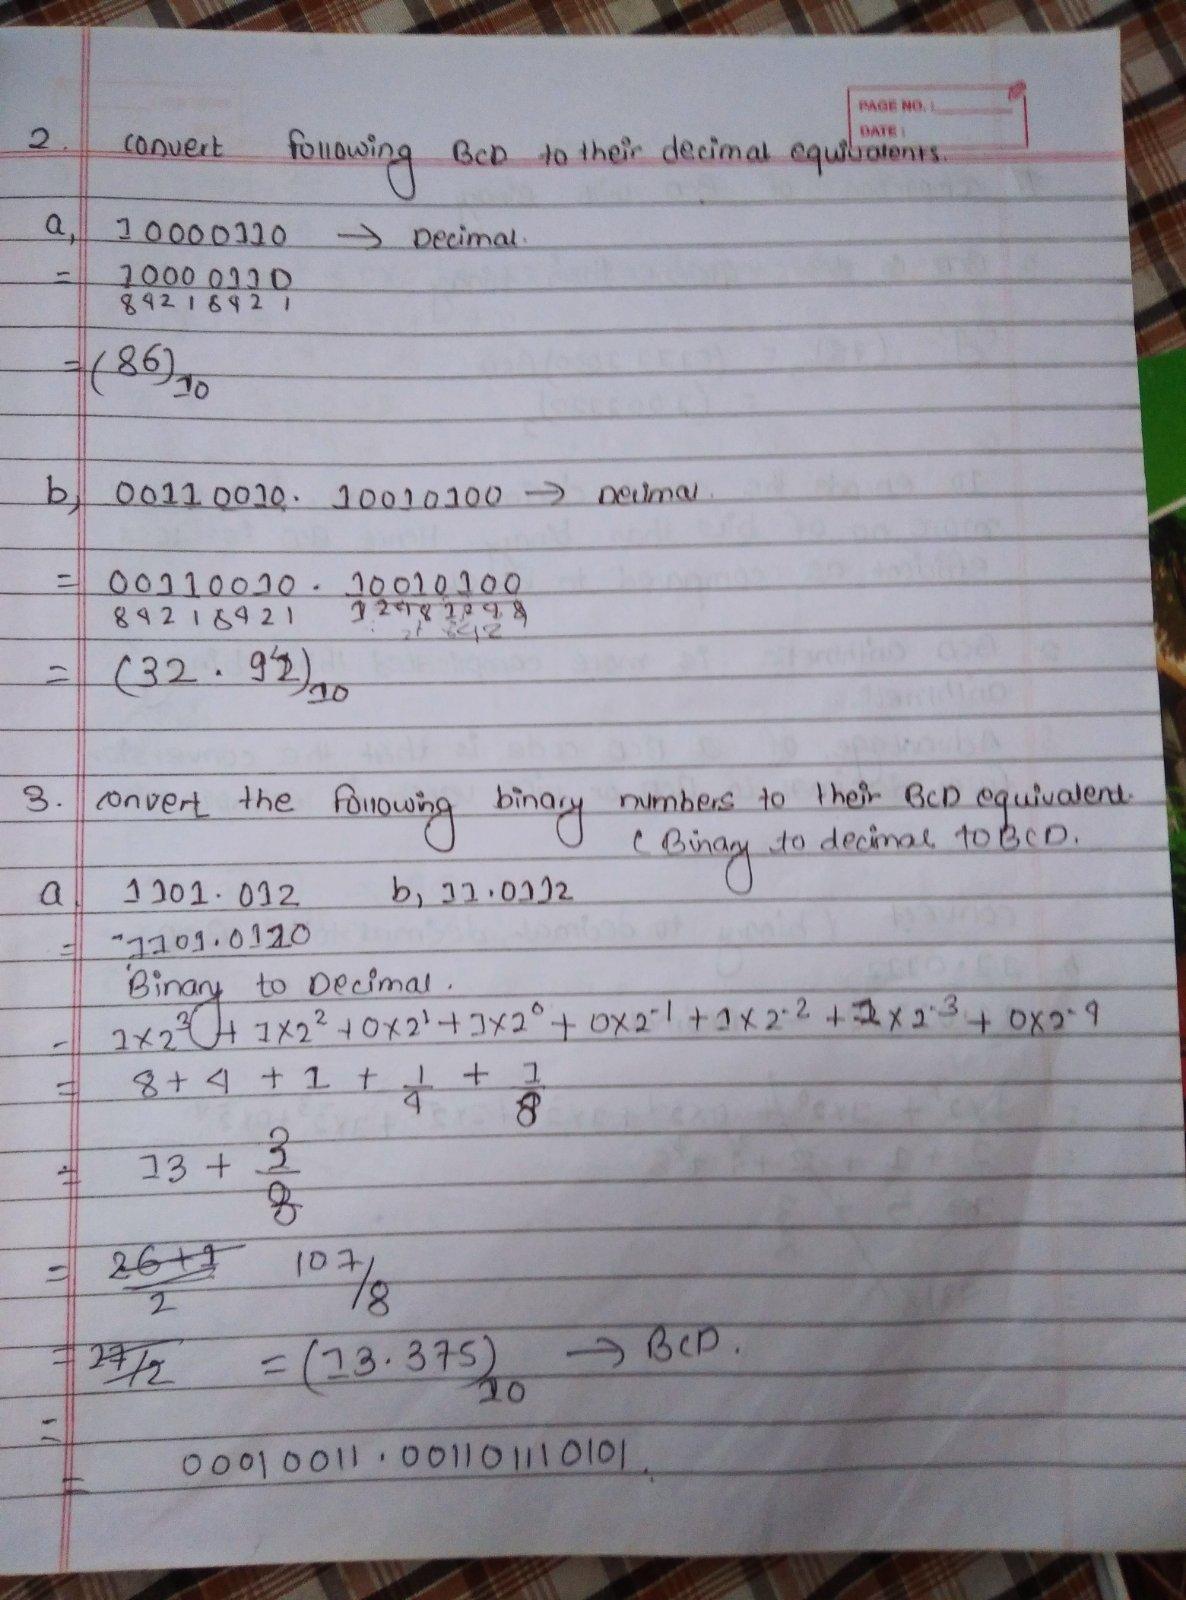 PAGE NO. :
DATE :
2. convert following BCD to their decimal equivalents.
a, 10000110 → Decimal.
= 1000 0110
8421 8421
= (86)10
b, 00110010. 10010100 → Decimal.
= 00110010 . 10010100
8421 8421
= (32 . 94)10
3. convert the following binary numbers to their BCD equivalent.
(Binary to decimal to BCD.
a 1101.011 b, 11.0111
= 1101.0110
Binary to Decimal.
= 1×2³ + 1×2² + 0×2¹ + 1×2⁰ + 0×2⁻¹ + 1×2⁻² + 1×2⁻³ + 0×2⁻⁴
= 8 + 4 + 1 + 1/4 + 1/8
= 13 + 3/8
= 26+1/2 107/8
= 27/2 = (13.375)10 → BCD.
=
= 00010011.001101110101.